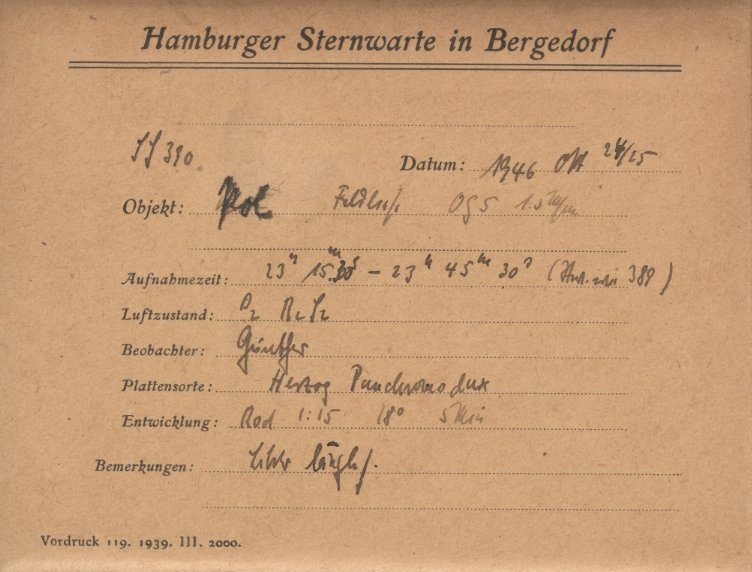 Hamburger Sternwarte in Bergedorf
390. Datum: 1946 Okt 24/25
Objekt: Pol OG 5
Aufnahmezeit: 23h 15m 30s – 23h 45m 30s ( 389 )
Luftzustand: P2 R2 S2
Beobachter: Günther
Plattensorte: Herzog Panchromodux
Entwicklung: Rod 1:15 18° 5 Min
Bemerkungen:
Vordruck 119. 1939. III. 2000.